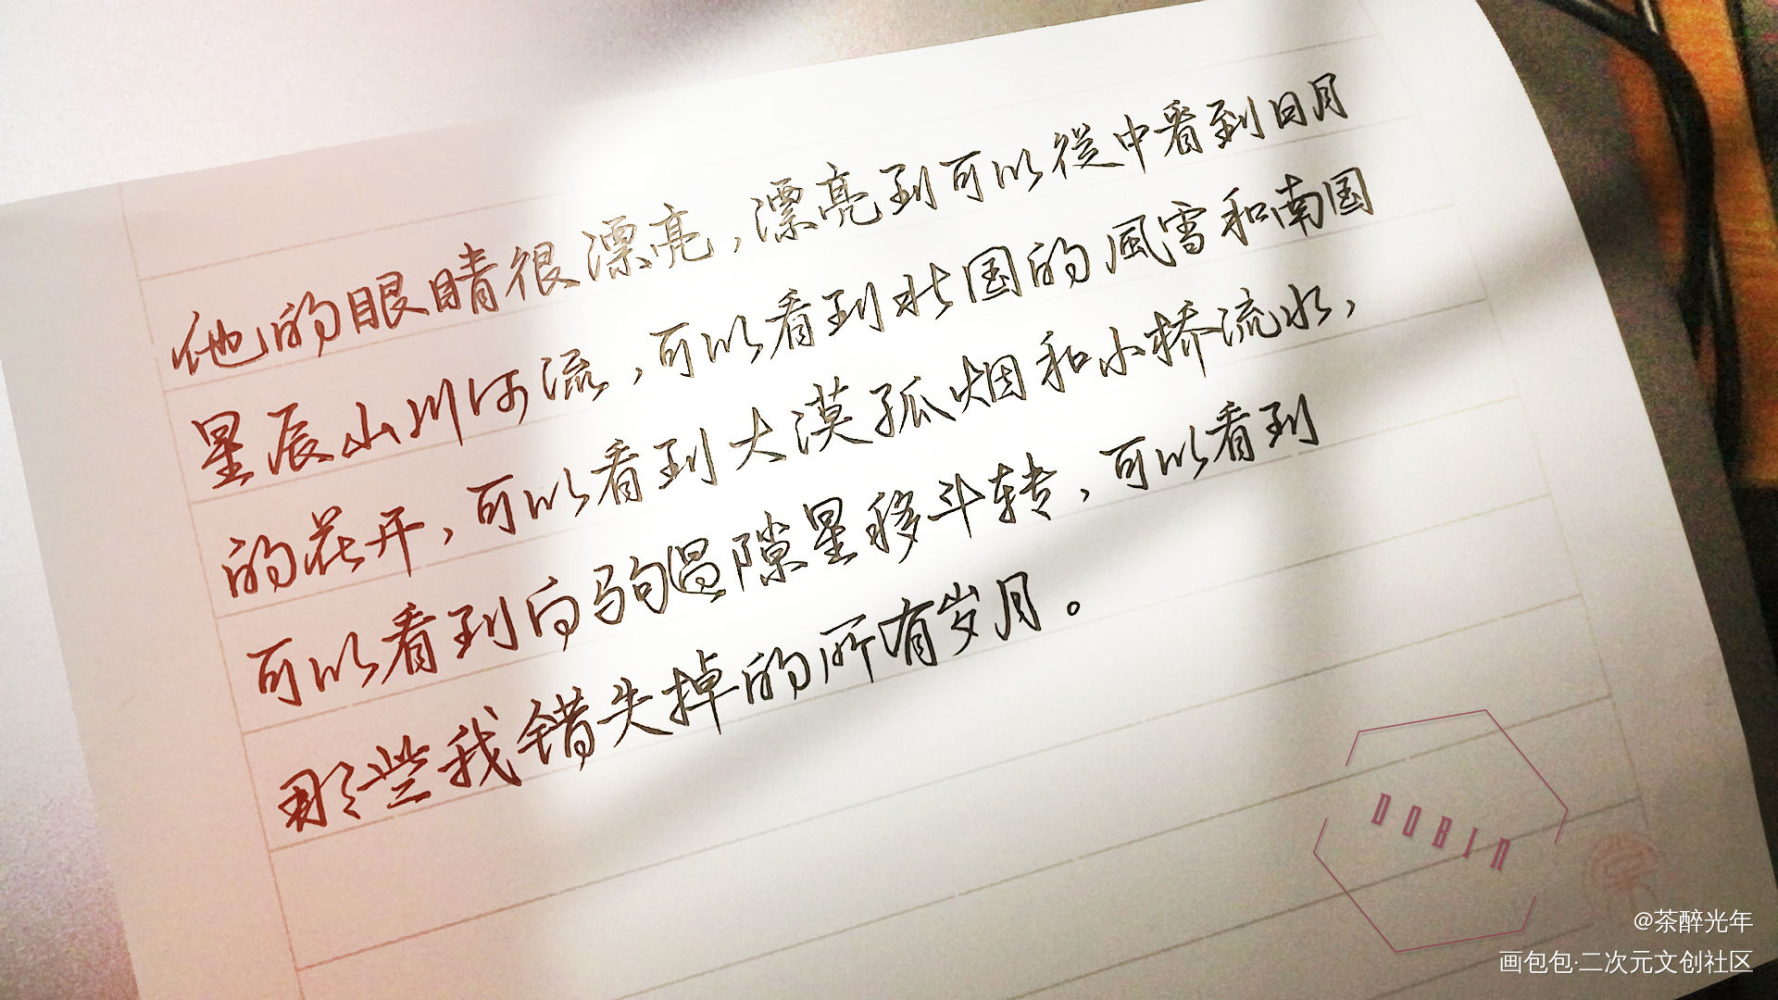 他的眼睛很漂亮，漂亮到可以從中看到日月
星辰山川河流，可以看到北国的風雪和南国
的花开，可以看到大漠孤烟和小桥流水，
可以看到白驹過隙星移斗转，可以看到
那些我错失掉的所有岁月。
DOBIN
@茶醉光年
画包包·二次元文创社区